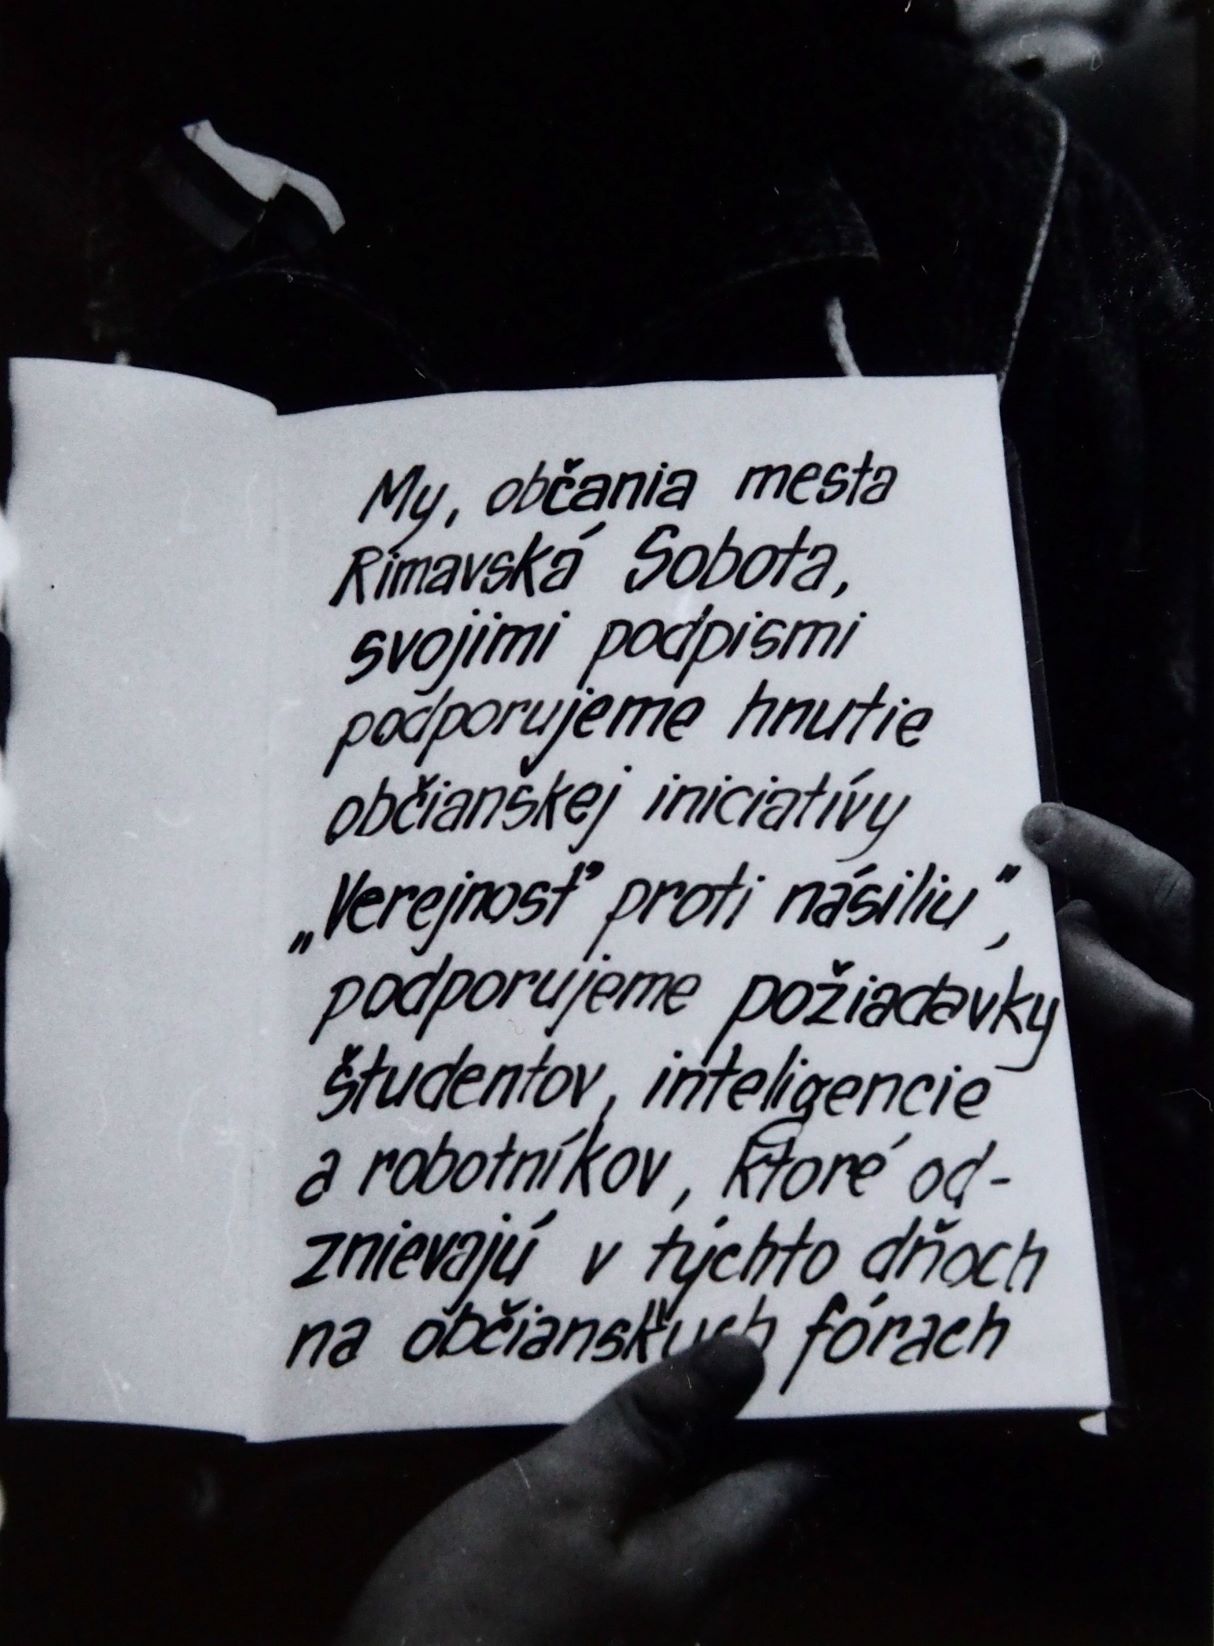 My, občania mesta
Rimavská Sobota,
svojimi podpismi
podporujeme hnutie
občianškej iniciatívy
„Verejnosť proti násiliu“,
podporujeme požiadavky
študentov, inteligencie
a robotníkov, ktoré od-
znievajú v týchto dňoch
na občianskych fórach